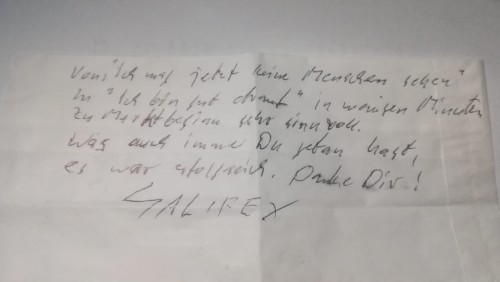 Von "Ich mag jetzt keine Menschen sehen"
zu "Ich bin gut drauf" in wenigen Minuten
zu Marktbeginn sehr sinnvoll.
Was auch immer Du getan hast,
es war erfolgreich. Danke Dir!
SALIFEX